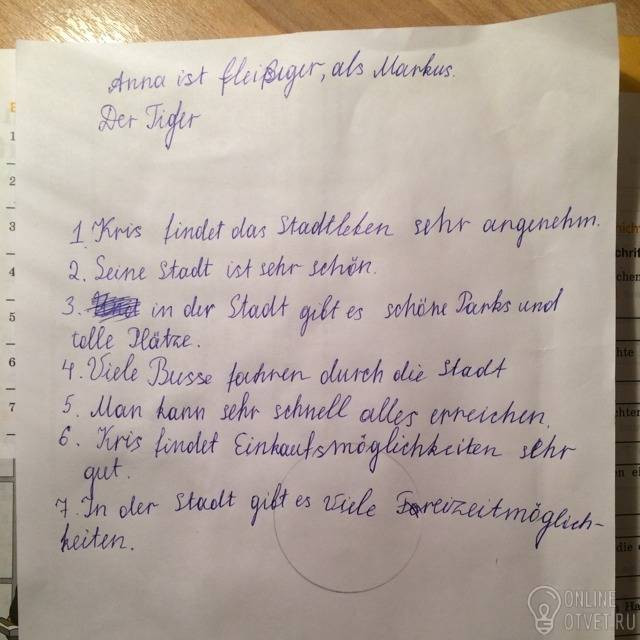 Anna ist fleißiger, als Markus.
Der Tiger
1. Kris findet das Stadtleben sehr angenehm.
2. Seine Stadt ist sehr schön.
3. in der Stadt gibt es schöne Parks und
tolle Plätze.
4. Viele Busse fahren durch die Stadt
5. Man kann sehr schnell alles erreichen.
6. Kris findet Einkaufsmöglichkeiten sehr
gut.
7. In der Stadt gibt es viele Freizeitmöglich-
keiten.
1
2
3
4
5
6
7
ONLINE
OTVET.RU